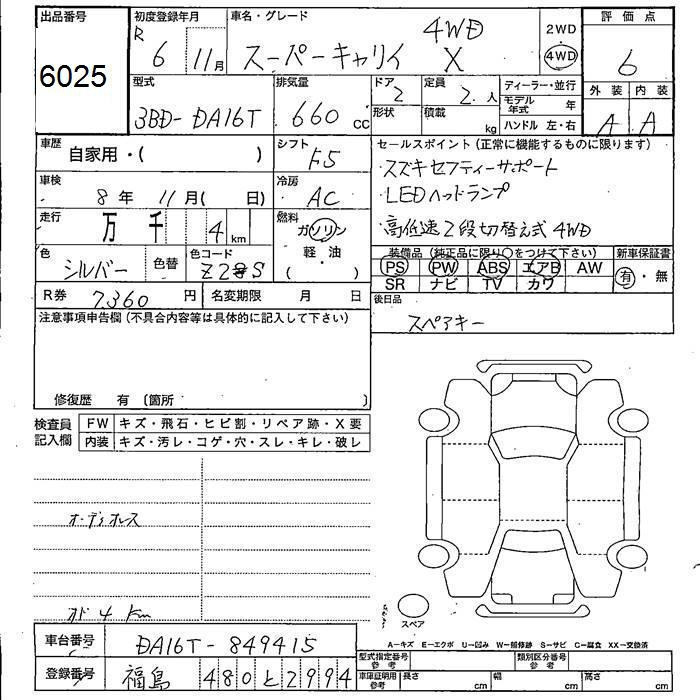 出品番号 初度登録年月 車名・グレード 評価点
6025 R 6 11月 スーパーキャリイ 4WD X 2WD 4WD 6
外装 内装
A A
型式 排気量 ドア 定員 ディーラー・並行
3BD-DA16T 660 cc 2 2 人 モデル年式 年
形状 積載 kg ハンドル 左・右
車歴 シフト セールスポイント(正常に機能するものに限ります)
自家用・( ) F5 スズキセフティーサポート
車検 冷房 LEDヘッドランプ
8年 11月( 日) AC 高低速2段切替え式4WD
走行 燃料
万 千 4 km ガソリン
軽・油
( ・ )
色 色替 色コード
シルバー Z2S S
装備品(純正品に限り○をつけて下さい) 新車保証書
PS PW ABS エアB AW 有・無
SR ナビ TV カワ
R券 7360 円 名変期限 月 日
後日品
スペアキー
注意事項申告欄(不具合内容等は具体的に記入して下さい)
修復歴 有 〔箇所 〕
検査員記入欄 FW キズ・飛石・ヒビ割・リペア跡・X要
内装 キズ・汚レ・コゲ・穴・スレ・キレ・破レ
オーディオレス
オド 4 Km
スペア
A-キズ E-エクボ U-凹み W-補修跡 S-サビ C-腐食 XX-交換済
車台番号 DA16T-849415
登録番号 福島 480 と 2994
型式指定番号 参考 類別区分番号 参考
車庫証明用 参考 長さ cm 幅 cm 高さ cm